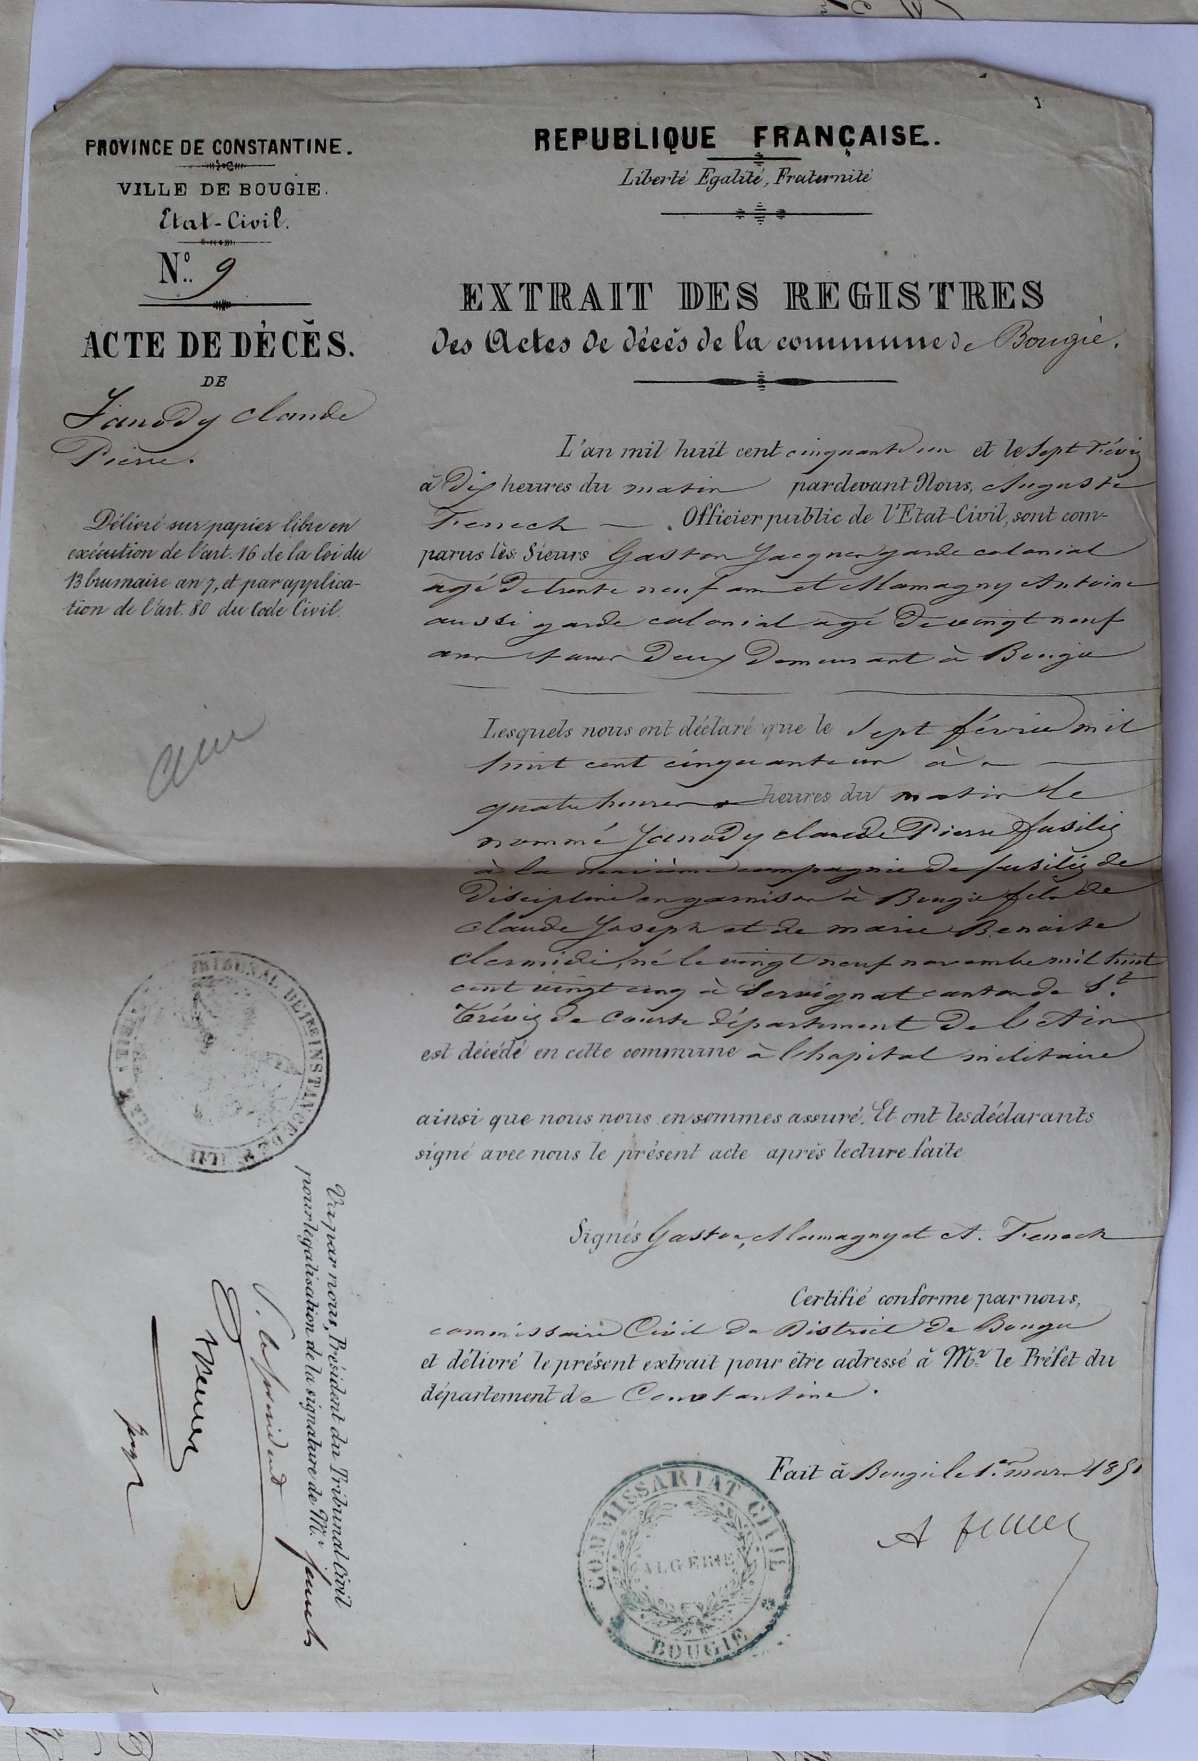 PROVINCE DE CONSTANTINE.
VILLE DE BOUGIE.
Etat-Civil.
N.° 9
ACTE DE DÉCÈS.
DE
Janody Claude
Pierre.
Délivré sur papier libre en
exécution de l'art. 16 de la loi du
13 brumaire an 7, et par applica-
tion de l'art. 80 du Code Civil.
REPUBLIQUE FRANÇAISE.
Liberté Egalité, Fraternité
EXTRAIT DES REGISTRES
des Actes de décès de la commune de Bougie.
L'an mil huit cent cinquante un et le Sept Févr
à Dix heures du matin pardevant Nous, Auguste
Feneck Officier public de l'Etat-Civil, sont com-
parus les Sieurs Gaston garde colonial
agé de trente neuf ans et Mamagny Antoine
aussi garde colonial agé de vingt neuf
ans tous Deux Demeurant à Bougie
Lesquels nous ont déclaré que le Sept février mil
huit cent cinquante un à
quatre heures heures du matin le
nommé Janody claude Pierre fusilier
à la compagnie de fusiliers de
Discipline en garnison à Bougie fils de
Claude Joseph et de marie Benoite
né le vingt neuf novembre mil huit
cent vingt cinq à Servignat canton de St
Trévier de Courte département de l'Ain
est décédé en cette commune à l'hopital militaire
ainsi que nous nous en sommes assuré. Et ont les déclarants
signé avec nous le présent acte après lecture faite
Signés Gaston, Mamagny et A. Feneck
Certifié conforme par nous,
commissaire Civil du District de Bougie
et délivré le présent extrait pour être adressé à Mr. le Préfet du
département de Constantine.
Fait à Bougie le 1er mars 1851
A Feneck
COMMISSARIAT CIVIL
ALGÉRIE
BOUGIE
TRIBUNAL DE 1RE INSTANCE DE
Vu par nous, Président du Tribunal Civil
pour légalisation de la signature de Mr. feneck
P. le president
juge